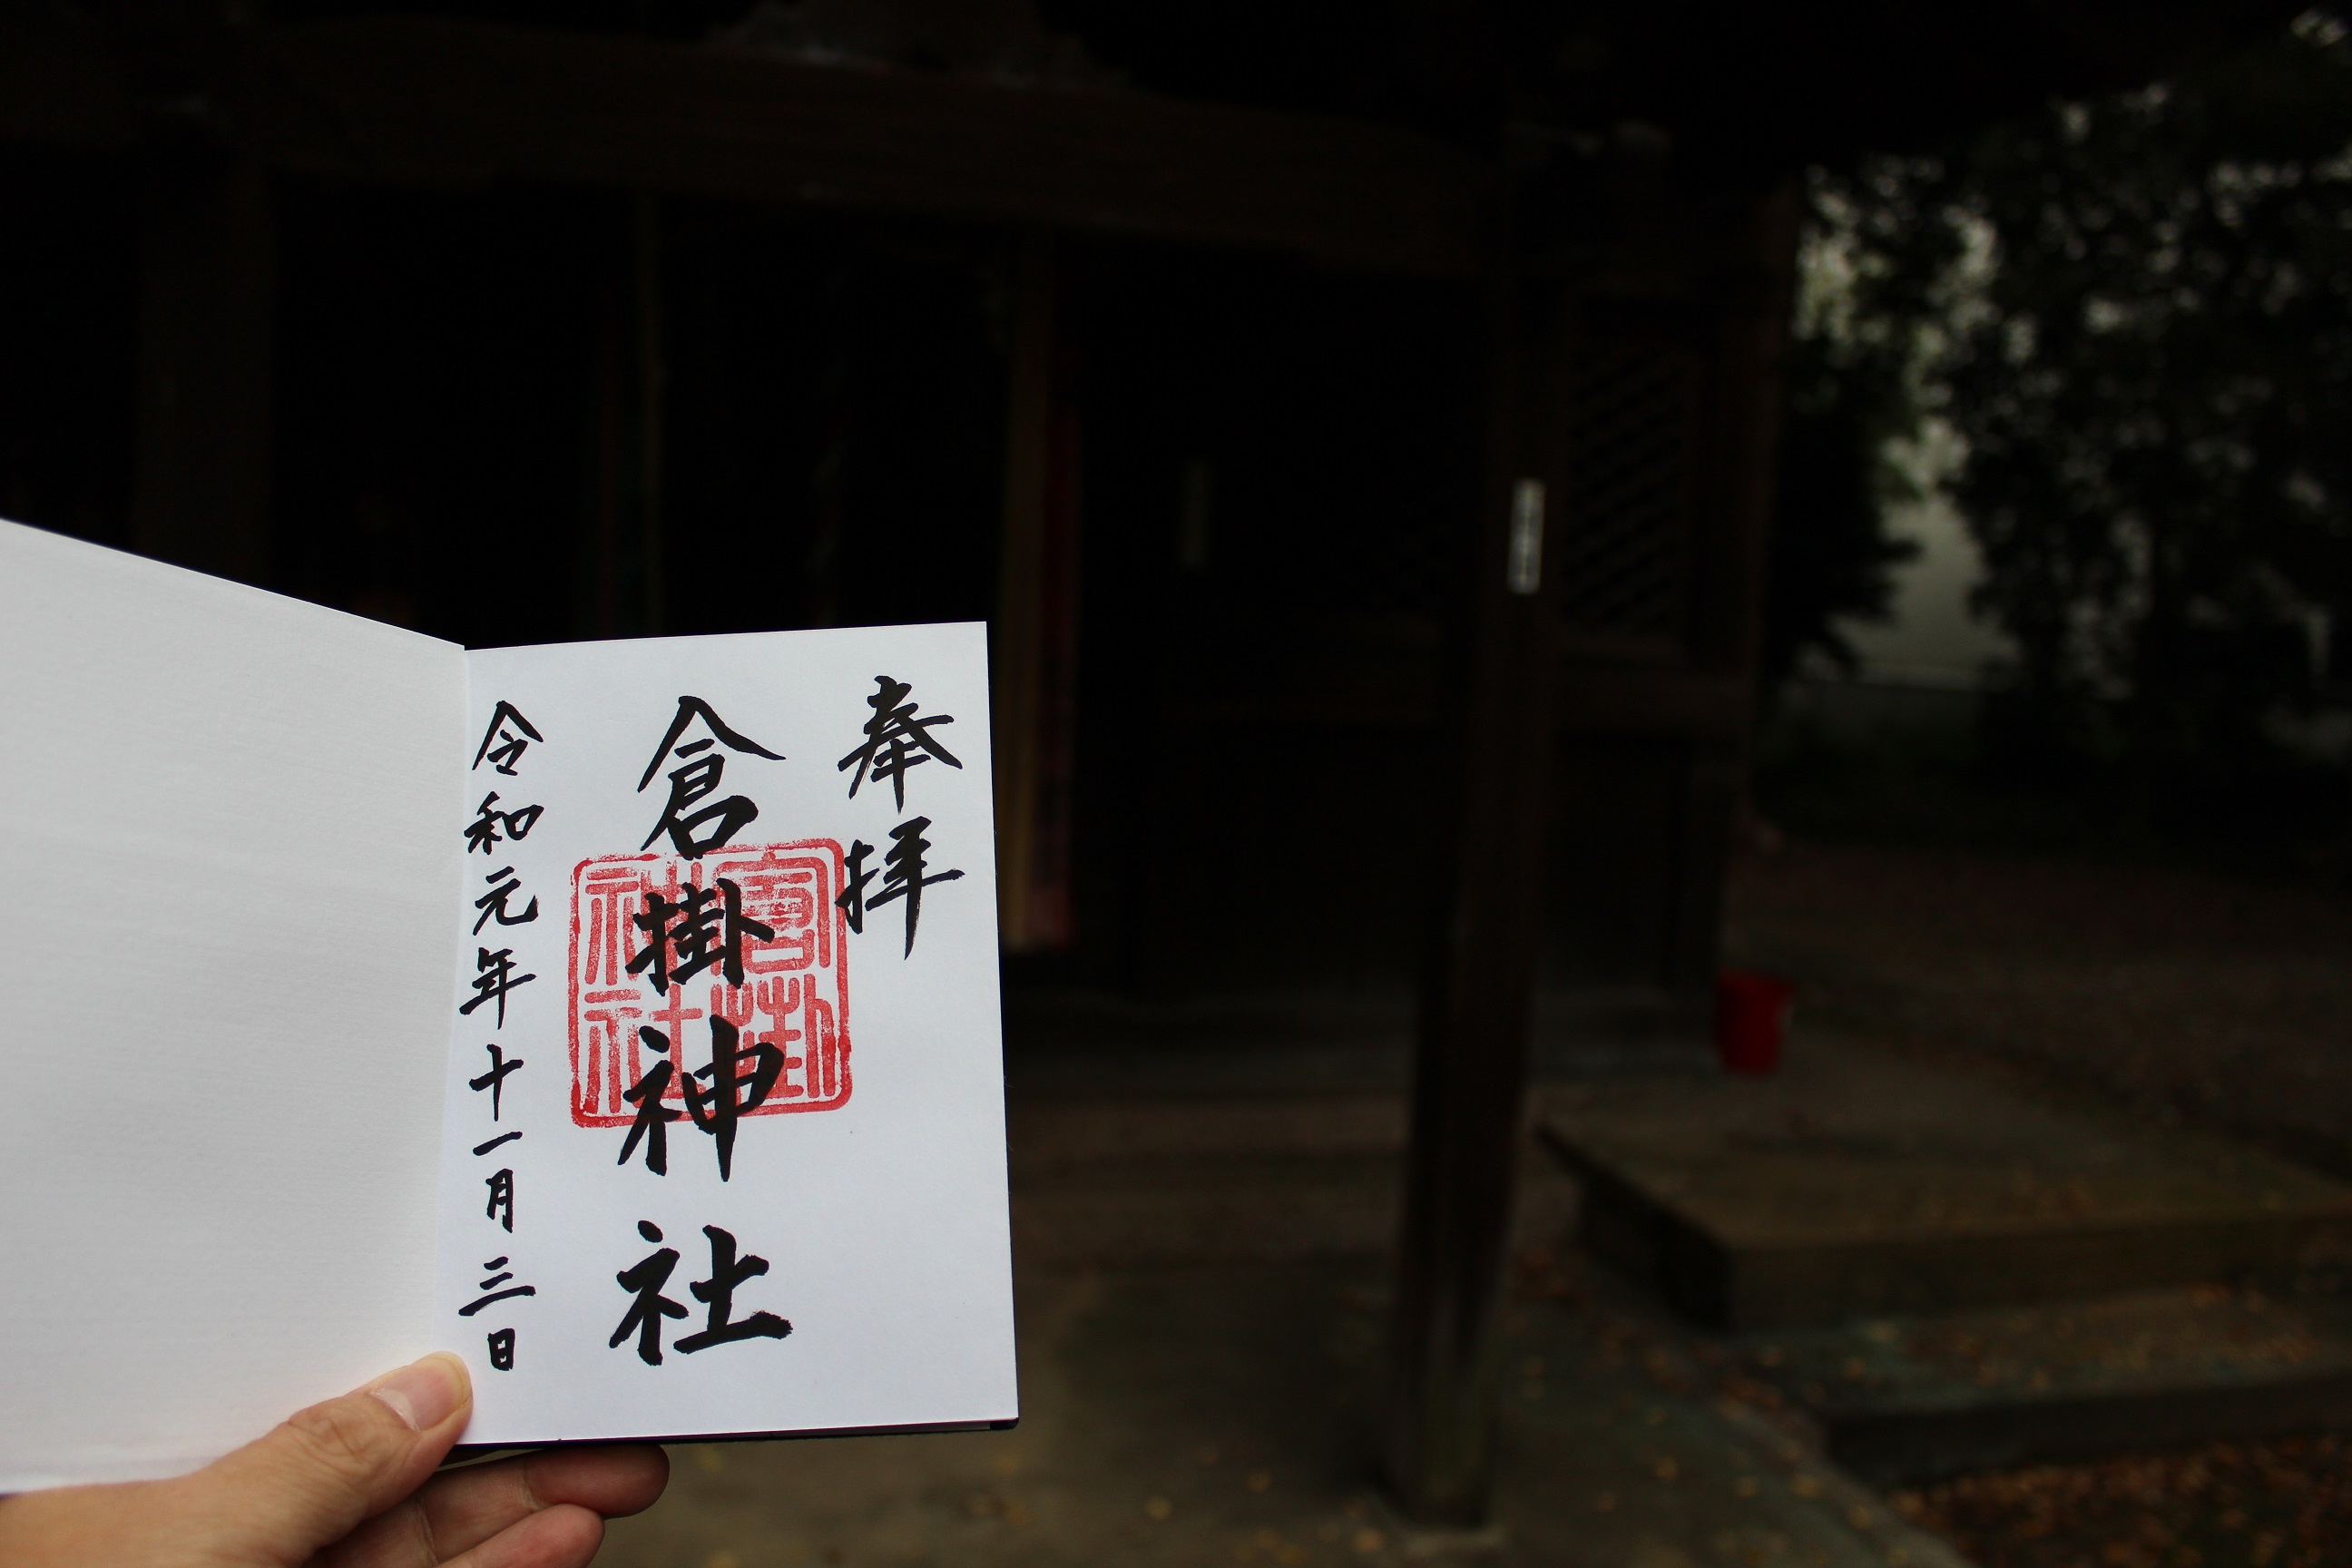 奉拝
倉掛神社
倉掛
神社
令和元年十一月三日